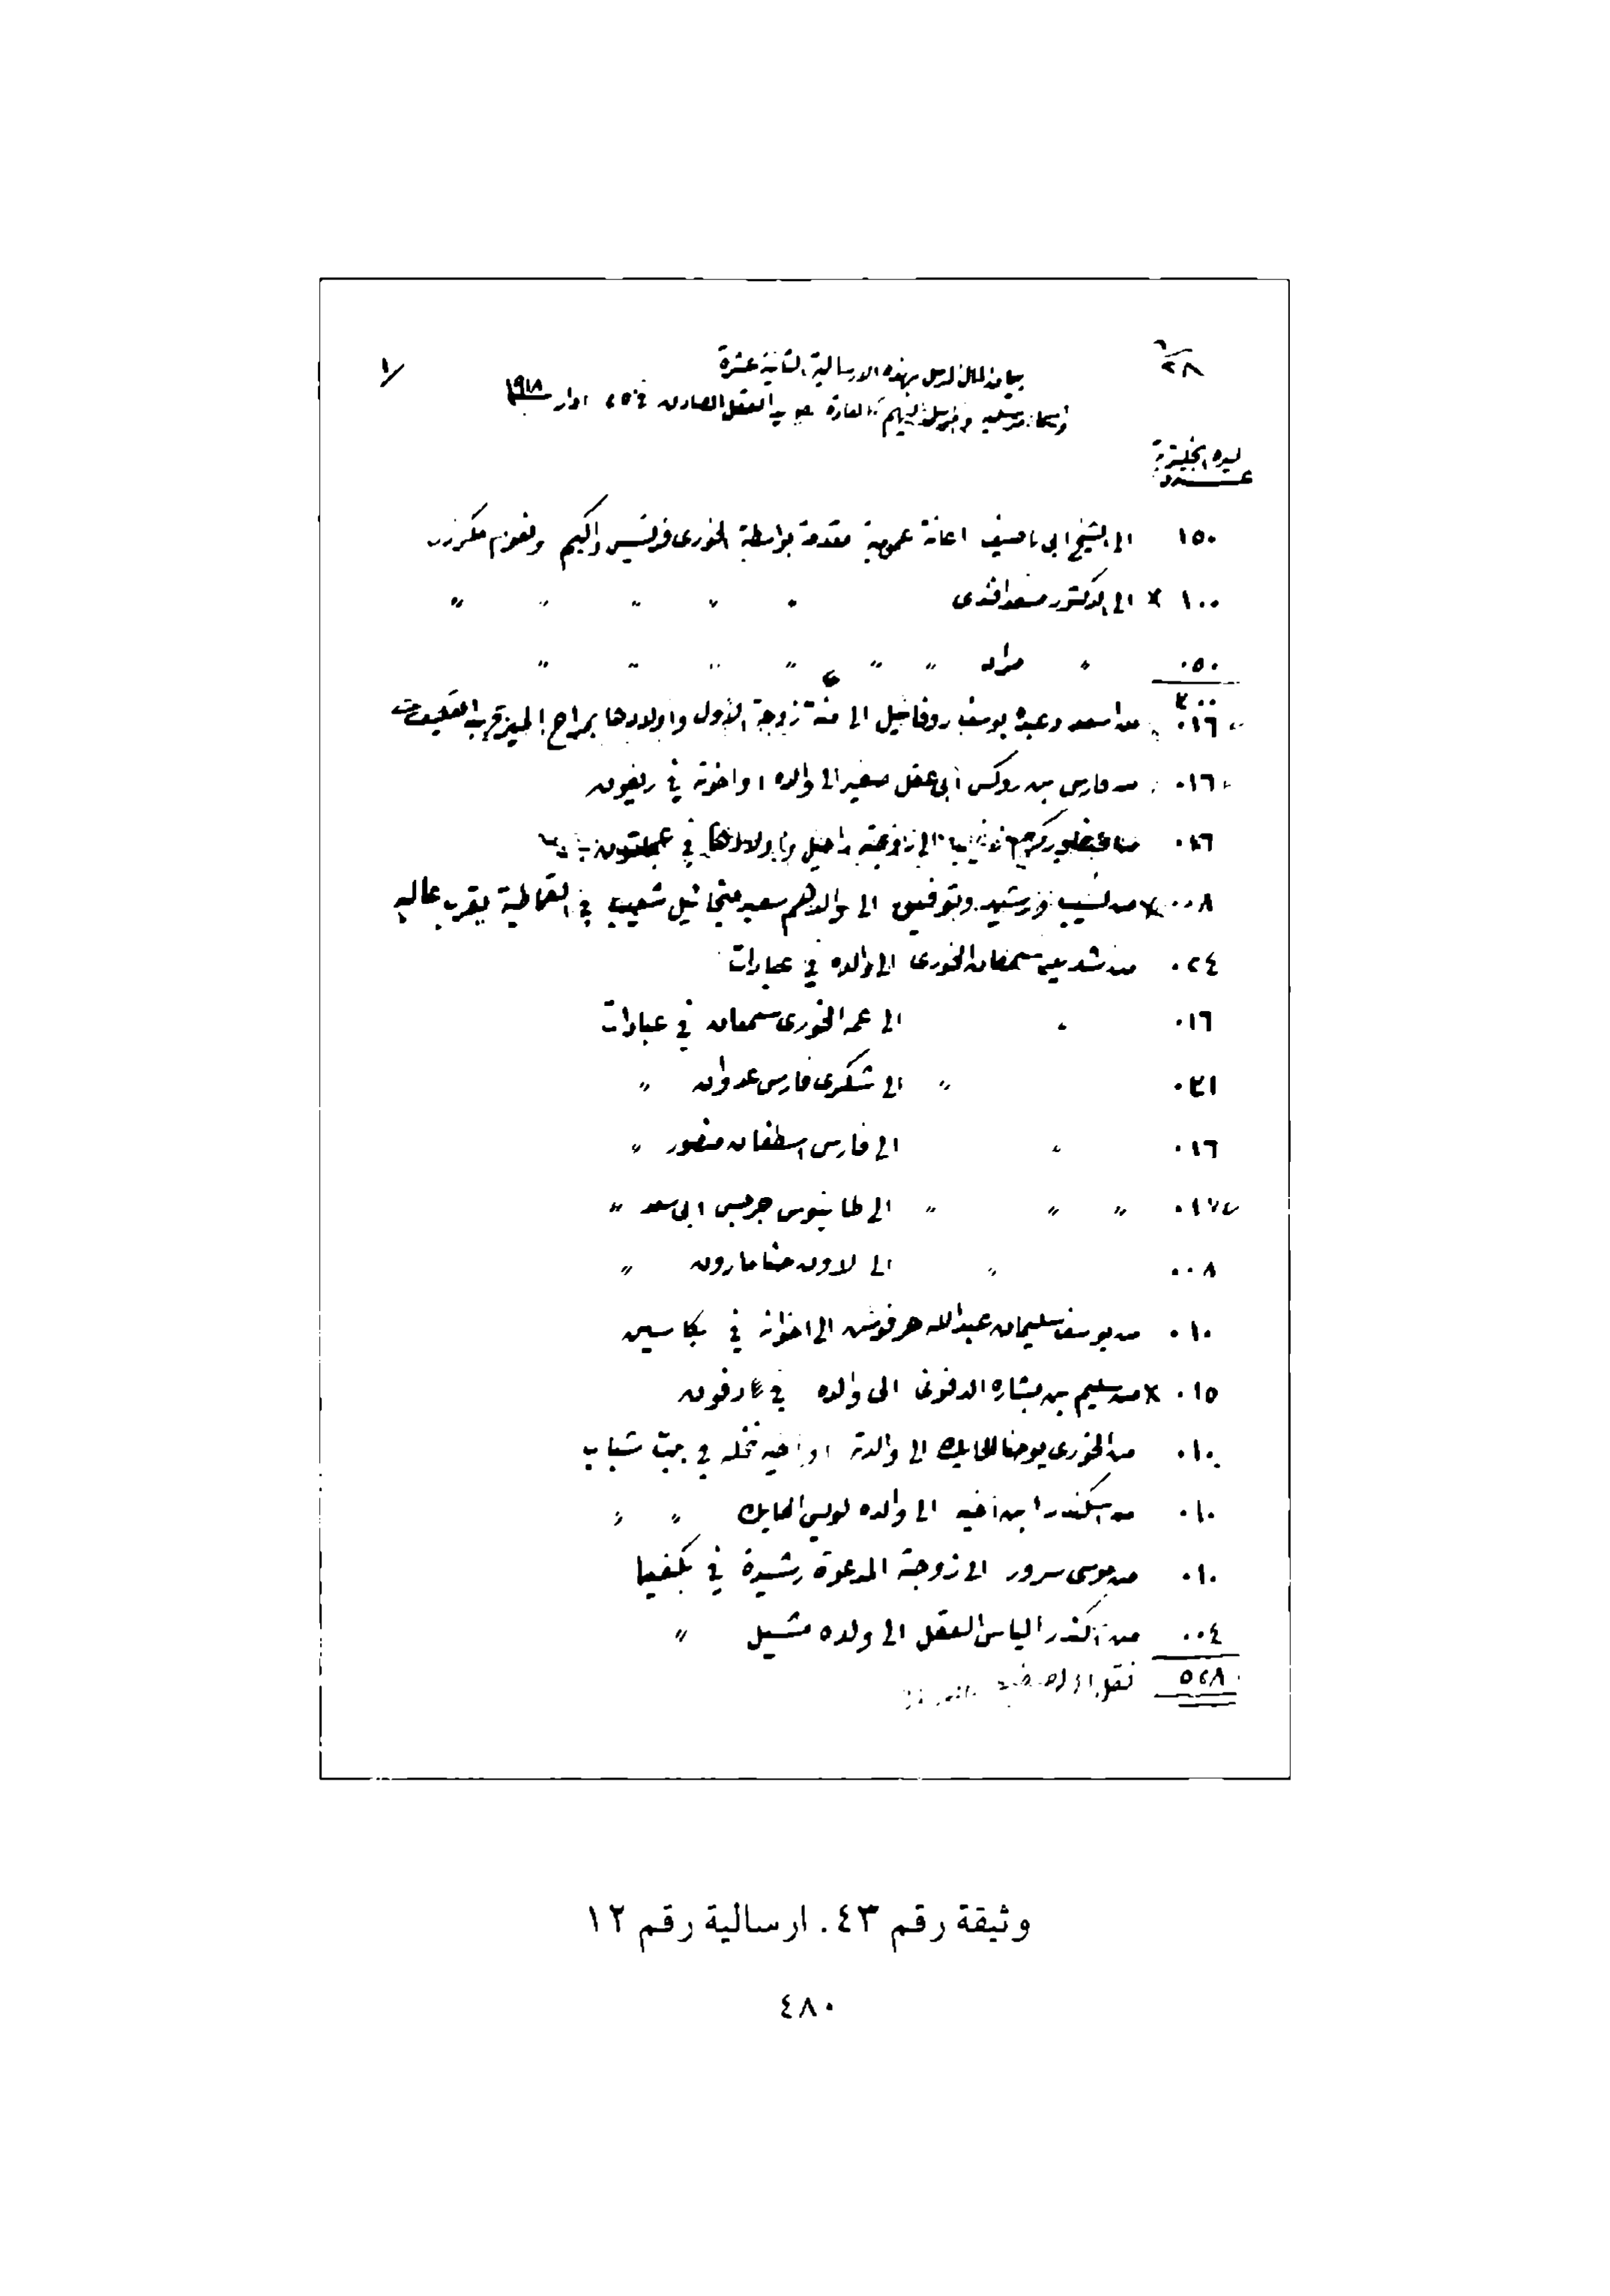 ٦/٢٨
١/
بيان المال المرسل بهذه الارسالية الثانية عشرة
واسماء مرسليه والمرسل اليهم العقل الصادر في ٢٥ اذار ١٩١٨
ليره انجليزية
عدد
١٥٠ الى الشيخ ابي ناصيف اعانة عمومية مقدمة بواسطة الخوري فرنسيس واكيم ونعوم مكرزل
١٠٠ × الى الدكتور مسعد افندي " " " " "
٠٥٠ " مراد " " " " " " "
٣٠٠
٠١٦ من اسعد وعبده يوسف روفائيل الى زوجة الاول واولادها بمراح المير قرب القليعات
٠١٦ من فارس بن روكس ابي عقل صفير الى والده او اخوته في ريفون
٠١٦ الى زوجته راحيل واولادها في عجلتون
٠٠٨ × من نسيب ورشيد وتوفيق الى والدهم سعيد مخائيل شعيب في القماطية بقرب عاليه
٠٢٤ من شديد سمعان الخوري الى والده في عبادات
٠١٦ " الى عمه الخوري سمعان في عبادات
٠٢١ " الى شكري فارس عدوان "
٠١٦ " الى فارس اسطفان منصور "
٠١٧ " " " الى طانيوس جرجس ابي سعد "
٠٠٨ " الى لاون حنا مارون "
٠١٠ من يوسف سليمان عبدالله حرفوش الى اخوانه في بكاسين
٠١٥ × من سليم بن بشاره الدفوني الى والده في دفون
٠١٠ من الخوري يوحنا الحايك الى والدته او اخيه نخله في بيت شباب
٠١٠ من اسكندر ابن اخيه الى والده لويس الحايك " "
٠١٠ من موسى سرور الى زوجته المدعوة رشيدة في بكفيا
٠٠٤ من اكندر الياس العقل الى ولده مشيل "
٥٢٨ نقل الى
وثيقة رقم ٤٣. ارسالية رقم ١٢
٤٨٠